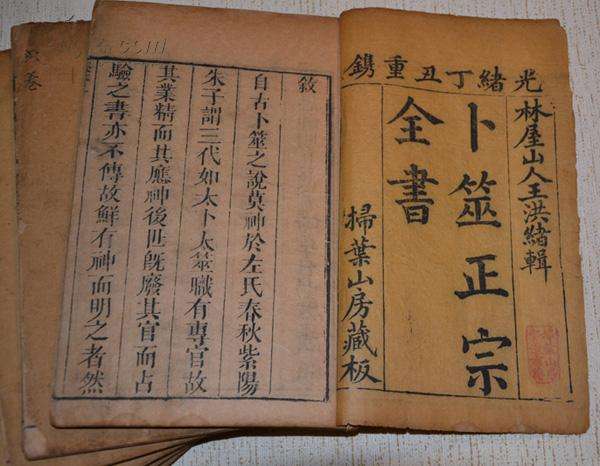 光緒丁丑重鐫
林屋山人王洪緒輯
卜筮正宗
全書
掃葉山房藏板
敘
自古卜筮之說莫神於左氏春秋紫陽
朱子謂三代如太卜太筮職有專官故
其業精而其應神後世旣廢其官而占
驗之書亦不傳故鮮有神而明之者然